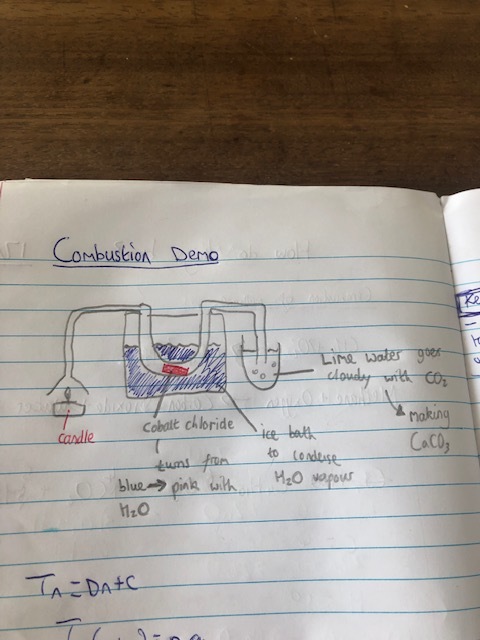 Combustion Demo
Lime water goes
cloudy with CO₂
making
CaCO₃
candle
cobalt chloride
turns from
blue → pink with
H₂O
ice bath
to condense
H₂O vapour
Tₙ = Dn + C